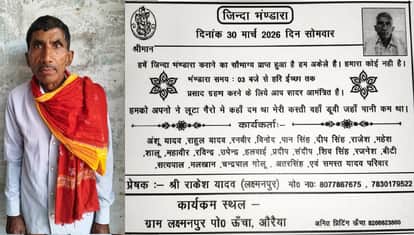 जिन्दा भण्डारा
दिनांक 30 मार्च 2026 दिन सोमवार
श्रीमान
हमें जिन्दा भण्डारा कराने का सौभाग्य प्राप्त हुआ है हम अकेले है। हमारा कोई नही है।
भण्डारा समय : 03 बजे से हरि ईच्छा तक
प्रसाद ग्रहण करने के लिए आप सादर आमंत्रित है।
हमको अपनो ने लुटा गैरो मे कहाँ दम था मेरी कस्ती वहाँ डूबी जहाँ पानी कम था।
कार्यकर्ता:-
अंशू यादव, राहुल यादव, रनवीर, विनोद, पान सिंह, दीप सिंह, राजेश, महेश
शालू, महावीर, रविन्द्र, उपेन्द्र, प्रदीप, संदीप, शिव सिंह, रजनेश, बीटी
सत्यपाल, मलखान, चन्द्रपाल गोलू, अतरसिंह, एवं समस्त यादव परिवार
प्रेषक:- श्री राकेश यादव (लक्ष्मनपुर) मो० नं०: 8077867675, 7830179522
कार्यकम स्थल -
ग्राम लक्ष्मनपुर पो0 ऊँचा, औरैया
प्रिंटिंग ऊँचा